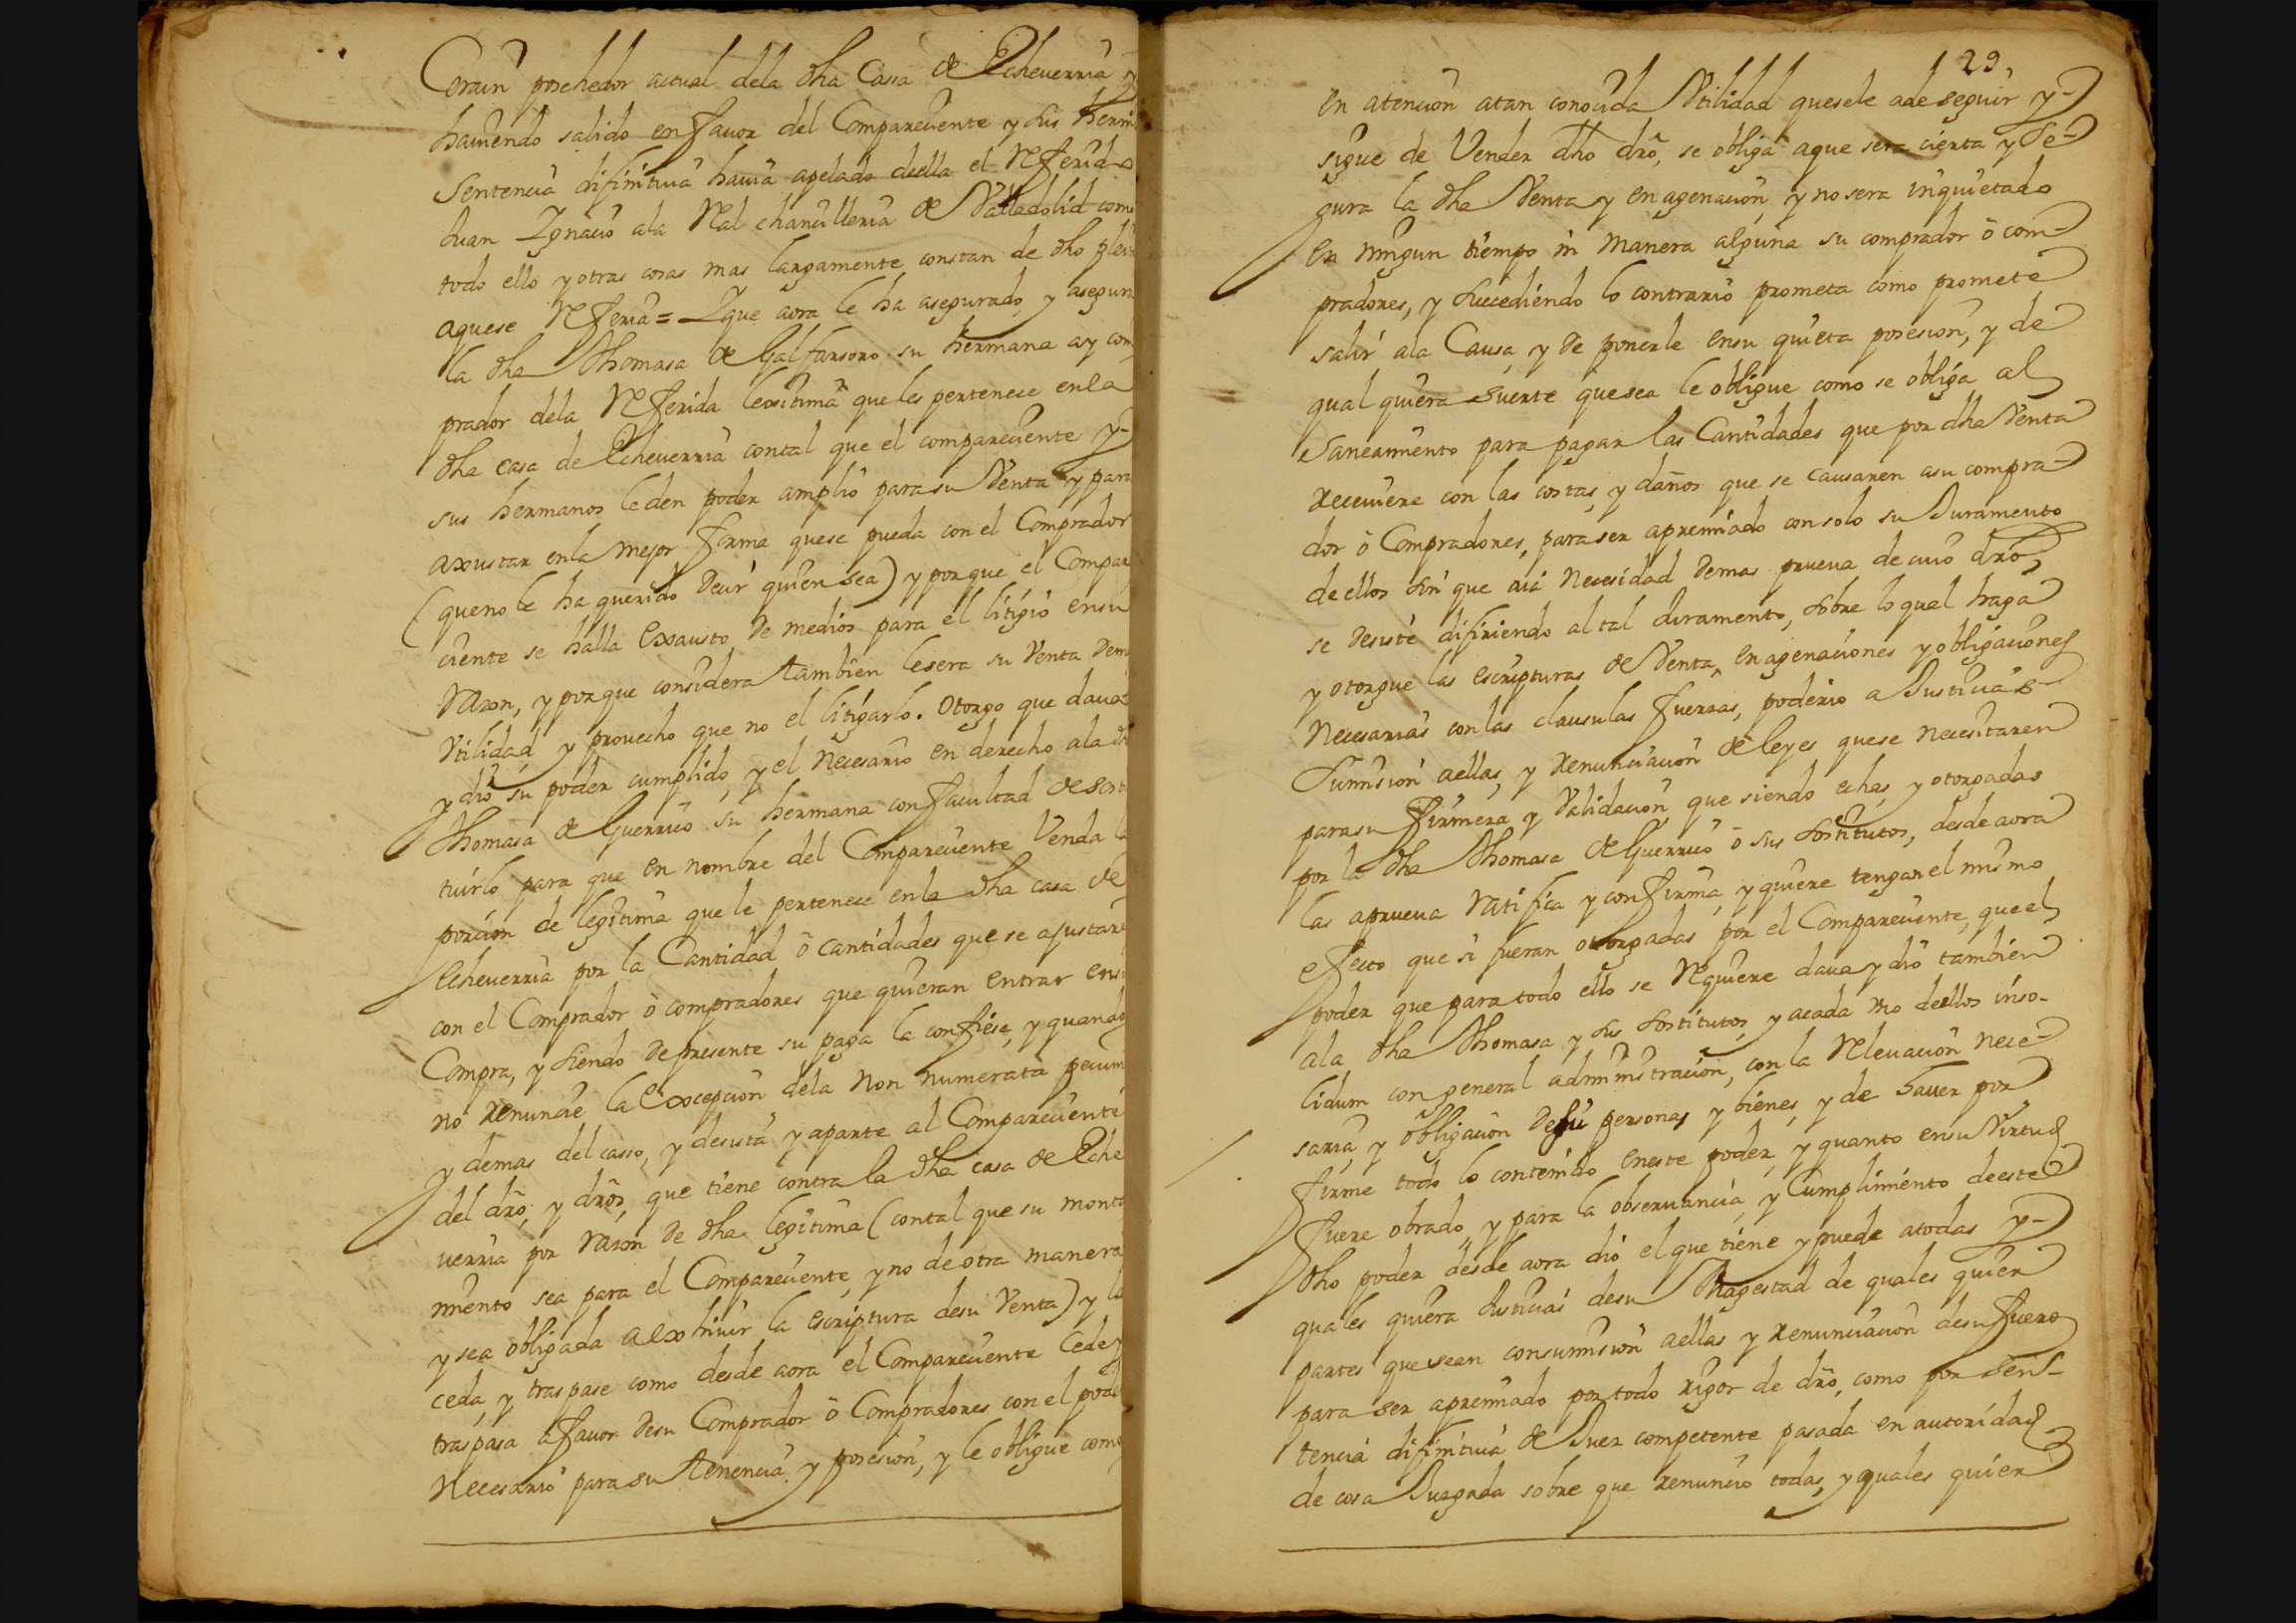 Corain poschedor actual dela dha Cassa de Echeuerria y
hauiendo salido en fauor del Compareciente y sus herm
Sentencia difinitiua hauia apelado deella el Referido
Juan Ignacio ala Real chancilleria de Valladolid como
todo ello y otras cosas mas largamente constan de dho pleit
aquese Referia = I que aora le ha asegurado, y asegura
la dha Thomasa de Galfarsoro su hermana ay com
prador dela Referida lexsitima que les pertenece enla
dha casa de Echeuerria contal que el compareciente y-
sus hermanos le den poder amplio para su Venta y para
axustar enla mejor forma quese pueda con el Comprador
(queno le ha querido decir quien sea) y porque el Compare
ciente se halla Exsausto de medios para el litigio ensu
Razon, y porque considera tambien lesera su Venta demas
Vtilidad, y prouecho que no el litigarlo. Otorgo que daua
y dio su poder cumplido, y el necesario en derecho ala dha
Thomasa de Guerrico su hermana con facultad de sosti
tuirlo para que en nombre del Compareciente Venda la
porcion de legitima que le pertenece enla dha casa de
Echeuerria por la Cantidad ó cantidades que se ajustare
con el Comprador ó compradores que quieran entrar ensu
Compra, y siendo de presente su paga la confiese, y quando
no renuncie la Excepcion dela non numerata pecunia
y demas del casso, y desista y aparte al Compareciente
del dro, y dros, que tiene contra la dha casa de Eche
uerria por razon de dha legitima (contal que su monta
miento sea para el Compareciente, y no de otra manera
y sea obligada a exhiuir la escriptura desu Venta) y lo
ceda, y traspase como desde aora el Compareciente Cede y
traspasa a fauor desu Comprador ó Compradores con el poder
Necesario para su tenencia y posesion, y le obligue como
29.
en atencion atan conocida Vtilidad quesele ade seguir y-
sigue de Vender dho dro, se obliga aque sera cierta y se-
gura la dha Venta y enagenacion, y no sera inquietado
en ningun tiempo ni manera alguna su comprador ó com-
pradores, y succediendo lo contrario prometa como promete
salir ala Causa, y de ponerle ensu quieta posesion, y de
qual quiera suerte quesea le obligue como se obliga al
Saneamiento para pagar las Cantidades que por dha Venta
receuiere con las costas, y daños que se causaren asu compra-
dor ó Compradores, para ser apremiado con solo su Juramento
de ellos sin que aia necesidad demas prueua de cuio dro,
se desiste difiriendo al tal Juramento, sobre lo qual haga
y otorgue las escripturas de Venta, enagenaciones y obligaciones
necesarias con las clausulas fuerzas, poderio a Justicias
Sumision aellas, y renunciacion de leyes quese necesitaren
para su firmeza y Validacion, que siendo echas, y otorgadas
por la dha Thomasa de Guerrico ó sus sostitutos, desde aora
las aprueua ratifica y confirma, y quiere tengan el mismo
efecto que si fueran otorgadas por el Compareciente, que el
poder que para todo ello se Requiere daua y dio tambien
ala dha Thomasa y sus sostitutos, y acada vno deellos inso-
lidum con general administracion, con la Releuacion nece-
saria, y obligacion desu personas y bienes, y de hauer por
firme todo lo contenido eneste poder, y quanto ensu Virtud
fuere obrado, y para la obseruancia, y Cumplimiento deeste
dho poder desde aora dió el que tiene y puede atodas y-
quales quiera Justicias desu Magestad de quales quier
partes que sean consumision aellas y renunciacion desu fuero
para ser apremiado por todo rigor de dro, como por sen-
tencia difinitiua de Juez competente pasada en autoridad
de cosa Juzgada sobre que renuncio todas, y quales quier